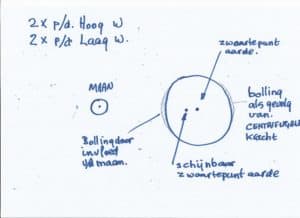 2x p/d. Hoog W
2x p/d Laag W.
zwaartepunt
aarde.
MAAN
bolling
als gevolg
van.
CENTRIFUGALE
KRACHT
Bolling door
invloed
v/d maan.
schijnbaar
zwaartepunt aarde